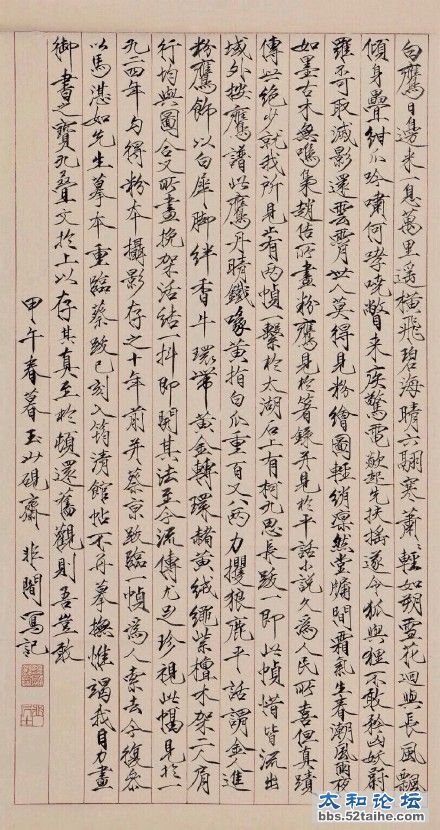 白鷹日邊來一息萬里遥橫飛碧海晴六翮寒蕭蕭輕如朔雪花迴與長風飄
傾身疊紺爪吟嘯何哮咷瞥来疾驚電欻起先扶摇遂令狐與狸不敢矜凶妖蔚
羅不可取滅影還雲霄世人莫得見粉繪圖輕綃凛然堂牖間霜氣生春潮風雨夜
如墨古木羣鴞集趙佶所畫粉鷹見於著録并見於平話小說久為人民所喜但真蹟
傳世絶少就我所見止有兩幀一繫於太湖石上有柯九思長跋一即此幀惜皆流出
域外按鷹譜此鷹丹睛鐵喙黄指白爪重百又八兩力攫狼鹿平話謂金人進
粉鷹飾以白犀脚絆香牛環帶黄金轉環赭黄絨繩紫檀木架二人肩
行均與圖合又所畫挽架活結一抖即開其法至今流傳尤足珍視此幅見於一
九二四年旋得粉本攝影存之十年前并蔡京跋臨一幀為人索去今復参
以馬湛如先生摹本重臨蔡跋已刻入筠清館帖不再摹撫惟竭我目力畫
御書之寶九叠文於上以存其真至於頓還舊觀則吾豈敢
甲午春暮玉山硯齋 非闇寫記
太和论坛
bbs.52taihe.com